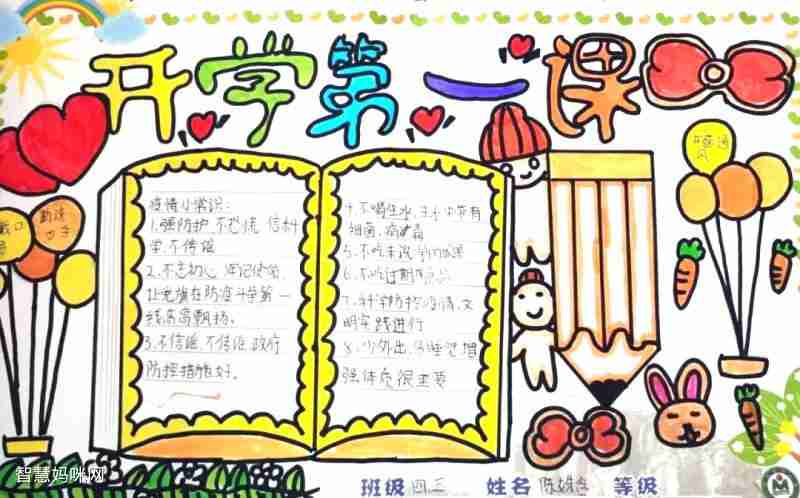 开学第一课
开窗通风
戴口
勤洗
疫情小常识:
1.强防护,不恐慌,信科
学,不传谣
2.不忘初心,牢记使命,
让党旗在防疫斗争第一
线高高飘扬。
3.不信谣,不传谣,政府
防控措施好。
4.不喝生水,生水中带有
细菌,病毒
5.不吃未洗
6.不吃过期
7.科学防控疫情,文
明实践进行
8.少外出,多睡觉,增
强体质很重要
智慧妈咪网
班级 四三 姓名 陈 等级